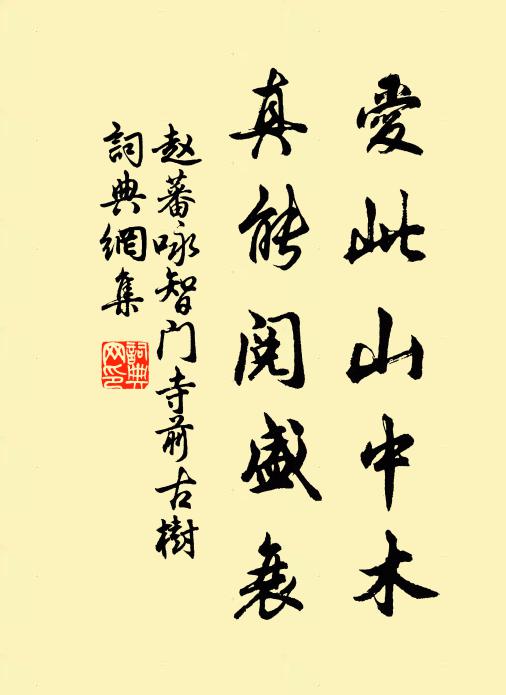 愛此山中木
真能閱盛衰
赵蕃咏智门寺前古樹
詞典網集
詞典网印